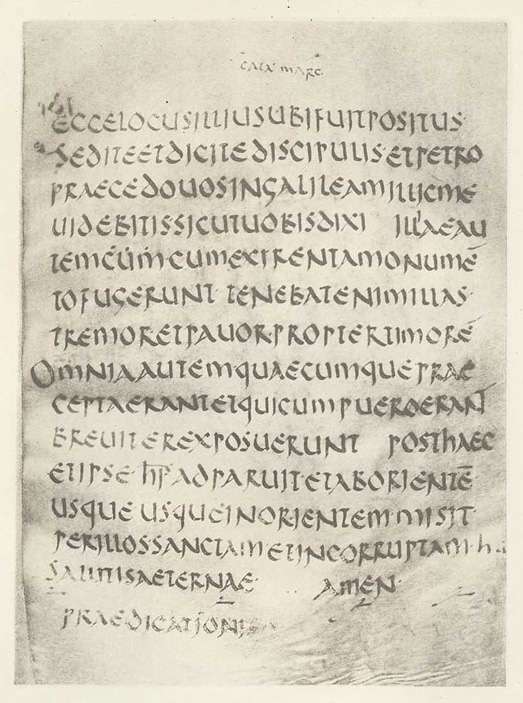 CATA MARC
ECCELOCUSILLIUSUBIFUITPOSITUS
SEDITEETDICITEDISCIPULIS·ETPETRO
PRAECEDOUOSINGALILEAMILLICME
UIDEBITISSICUTUOBISDIXI ILLAEAU
TEMCŪMCUMEXIRENTAMONUMĒ
TOFUGERUNT TENEBATENIMILLAS·
TREMORETPAUOR·PROPTERTIMORĒ
OMNIAAUTEMQUAECUMQUEPRAE
CEPTAERANTETQUICUMPUEROERANT
BREUITEREXPOSUERUNT POSTHAEC
ETIPSE ADPARUITETABORIENTĒ
USQUE USQUEINORIENTEM·MISIT
PERILLOSSANCTAMETINCORRUPTAM·h
SALUTISAETERNAE· AMEN·
PRAEDICATIONIS